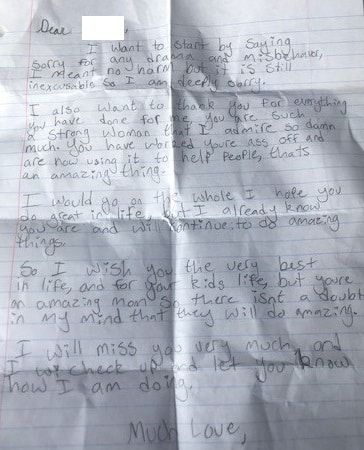 Dear ,
I want to start by saying
sorry for any drama and misbehaver,
I meant no harm but it is still
inexcusable so I am deeply sorry.
I also want to thank you for everything
you have done for me, you are such
a strong woman that I admire so damn
much. You have worked youre ass off and
are now using it to help people, thats
an amazing thing.
I would go on the whole I hope you
do great in life, but I already know
you are and will continue to do amazing
things.
So I wish you the very best
in life, and for your kids life, but youre
an amazing mom so there isnt a doubt
in my mind that they will do amazing.
I will miss you very much, and
I check up and let you know
how I am doing.
Much Love,